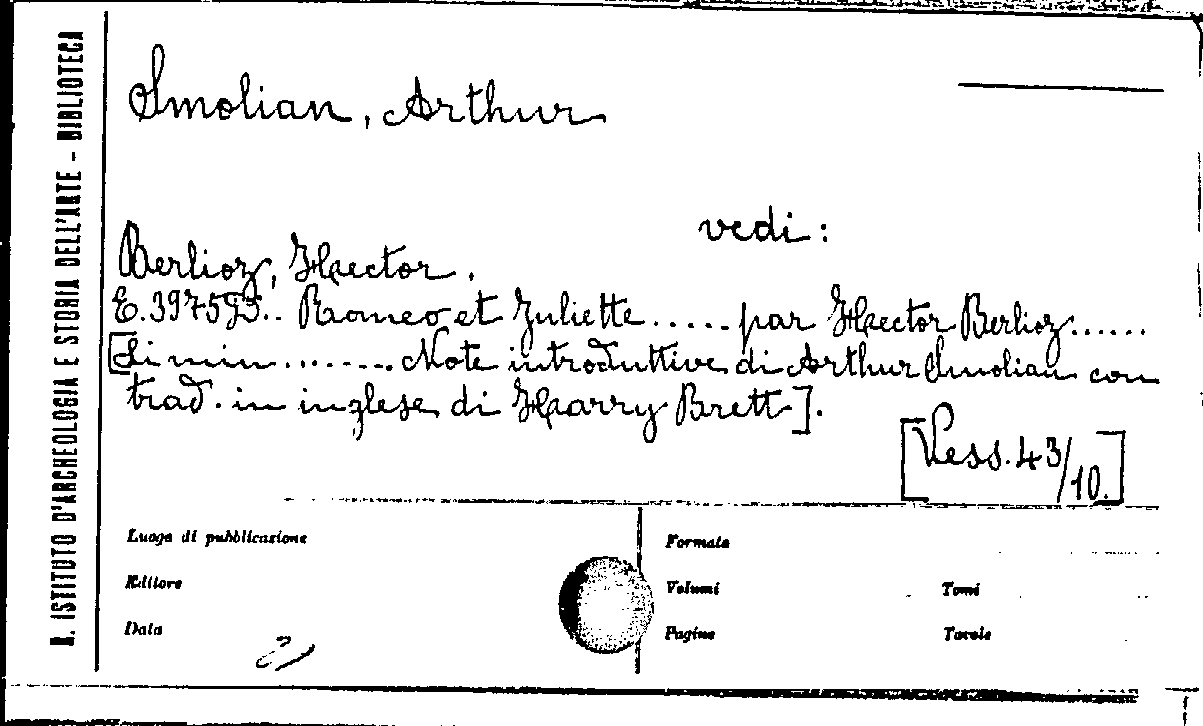 R. ISTITUTO D'ARCHEOLOGIA E STORIA DELL'ARTE - BIBLIOTECA
Smolian, Arthur
vedi:
Berlioz, Hector.
E. 397593.. Romeo et Juliette ..... par Hector Berlioz ......
[Si min ........ Note introduttive di Arthur Smolian con
trad. in inglese di Harry Brett].
[Vess. 43/10.]
Luogo di pubblicazione
Editore
Data
Formato
Volumi
Tomi
Pagine
Tavole